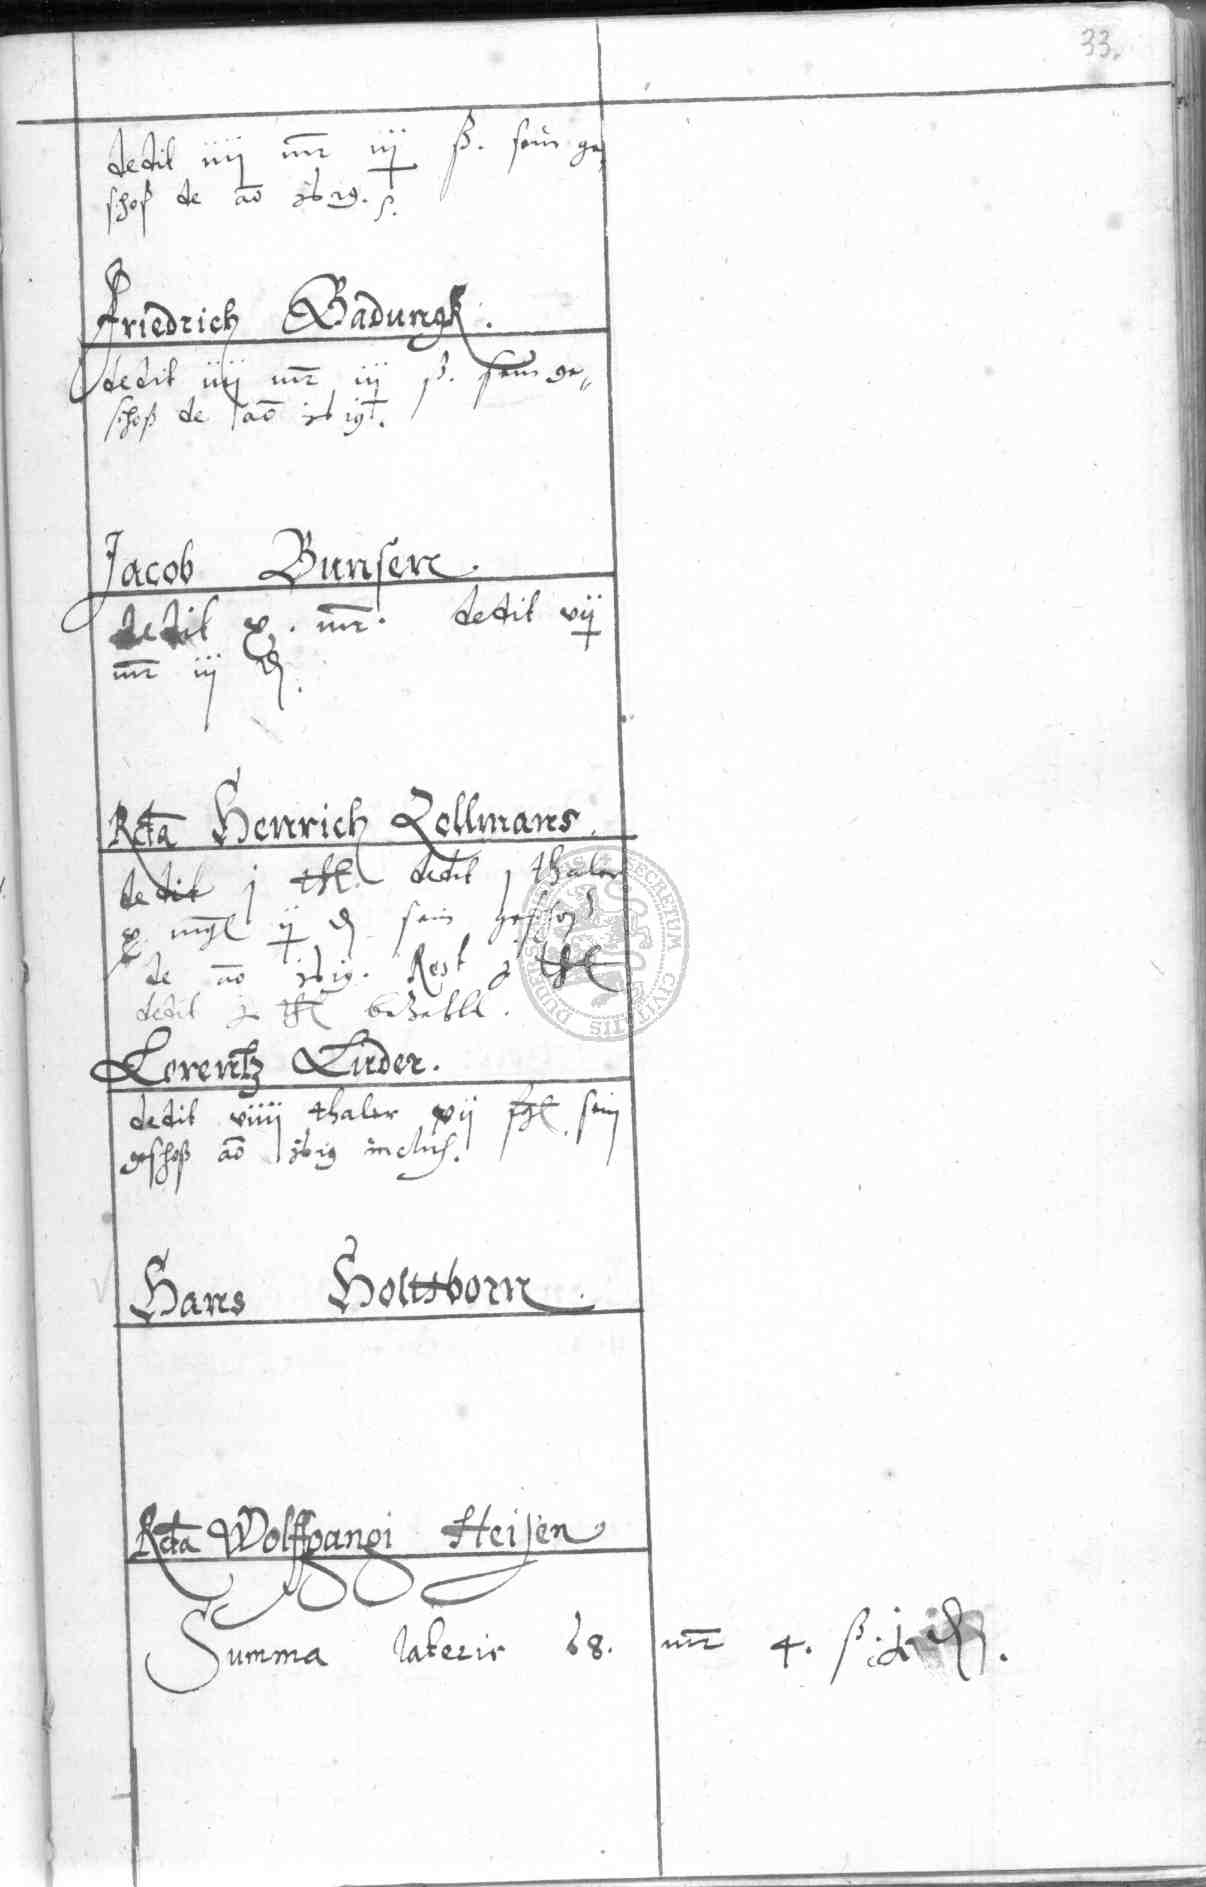 33.
dedit iiij mr iij ß. sein ge„
schoß de ao 1619.
Friedrich Badungk.
dedit iiij mr iij ß. sein ge„
schoß de ao 1619.
Jacob Bunsen.
dedit x. mr. dedit vij
mr iij ₰.
Rcta Henrich Zollmans.
dedit j thl. dedit j thaler
x mgl ij ₰ sein geschoß
de ao 1619. Rest thl
dedit thl bezahlt.
Lorentz Luder.
dedit viiij thaler xij fgl. sein
geschoß ao 1619 inclus.
Hans Holttborn.
Rcta Wolffgangi Heisen
Summa lateris 68. mr 4. ß.
SECRETUM CIVITATIS DUDERS